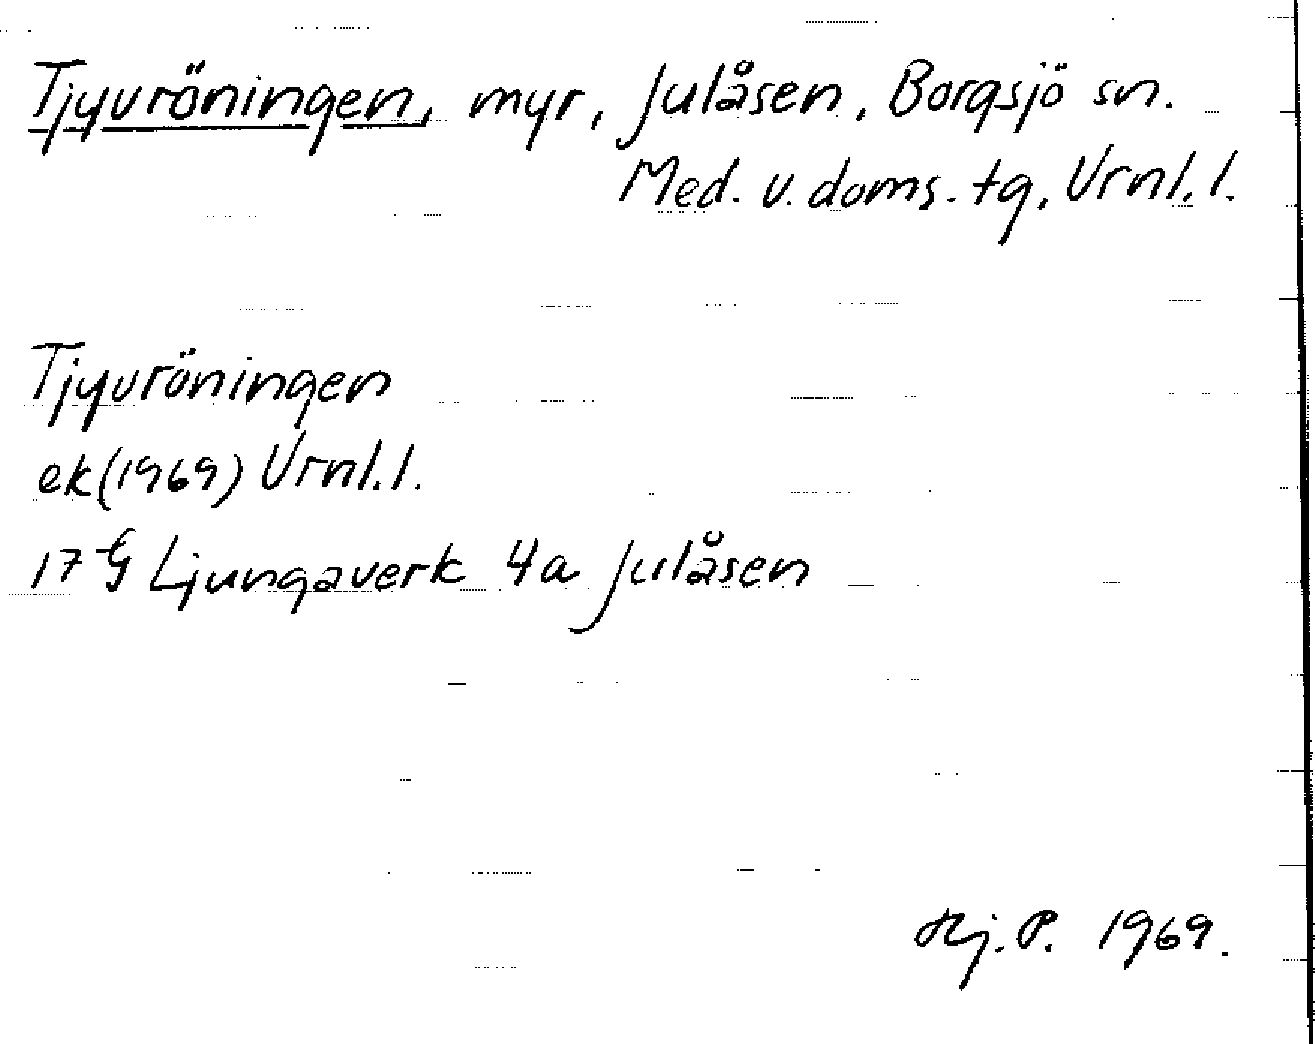 Tjyvröningen, myr, Julåsen, Borgsjö sn.
Med. v. doms. tg, Vrnl. l.
Tjyvröningen
ek (1969) Vrnl. l.
17 G Ljungaverk 4a Julåsen
Hj. P. 1969.